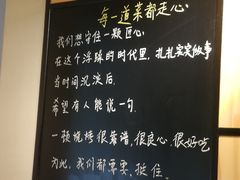 每一道菜都走心
我们想守住一颗匠心
在这个浮躁的时代里，扎扎实实做事
当时间沉淀后，
希望有人能说一句，
一顿烧烤很靠谱、很良心、很好吃
为此，我们都需要，挺住。